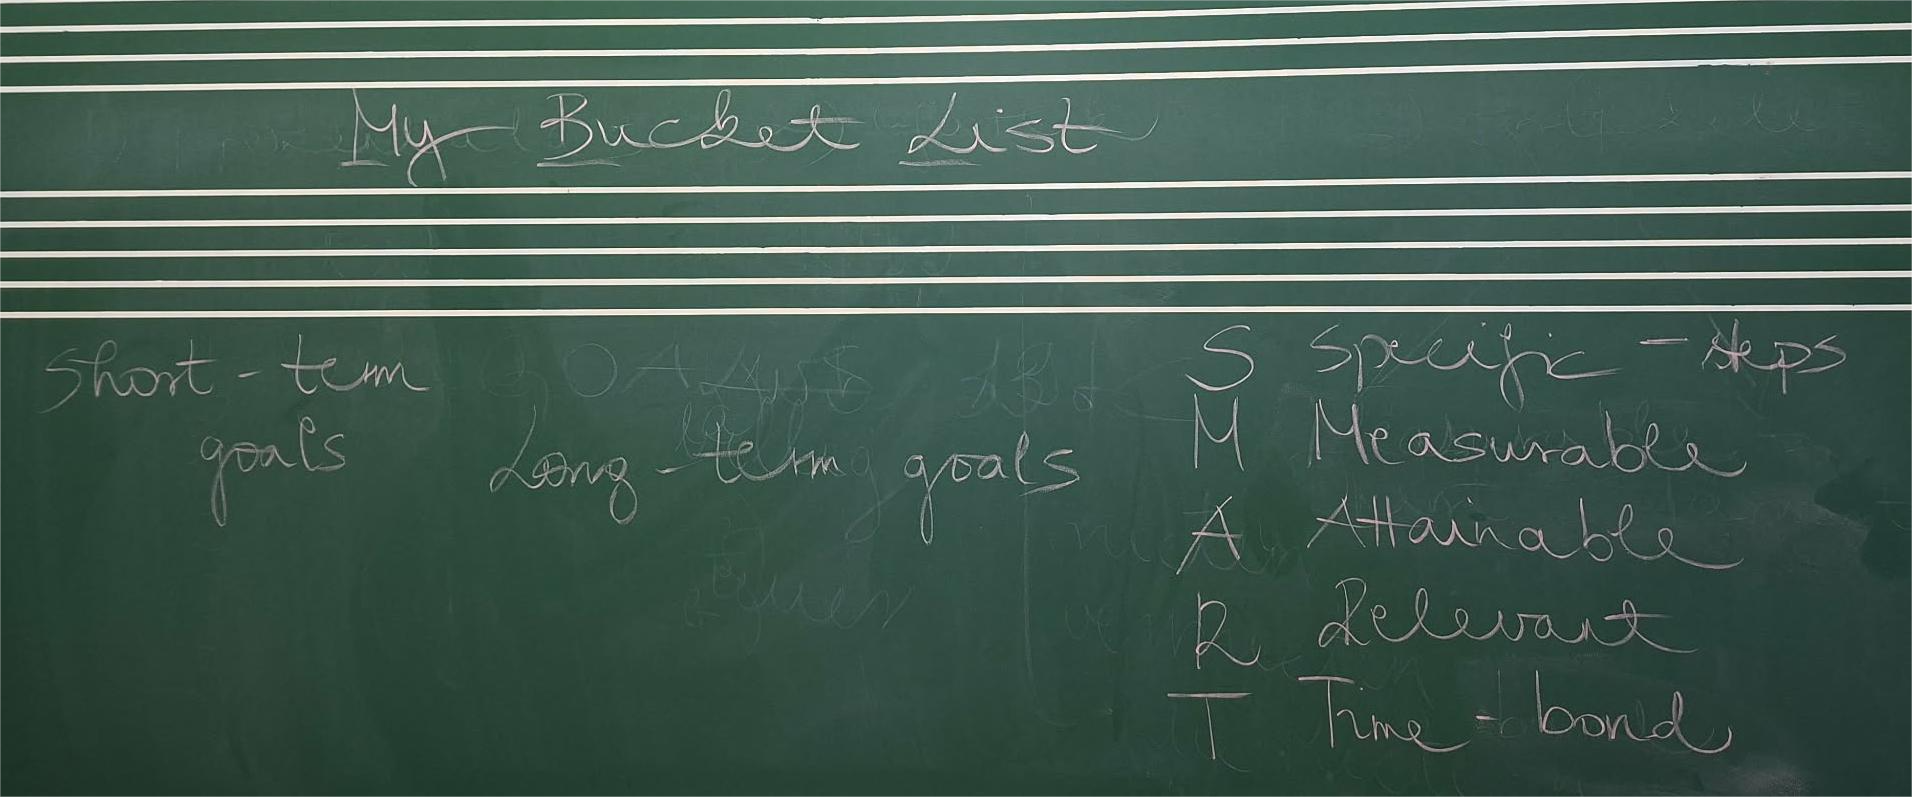 My Bucket List
Short-term
goals
Long-term goals
S Specific - steps
M Measurable
A Attainable
R Relevant
T Time-bond